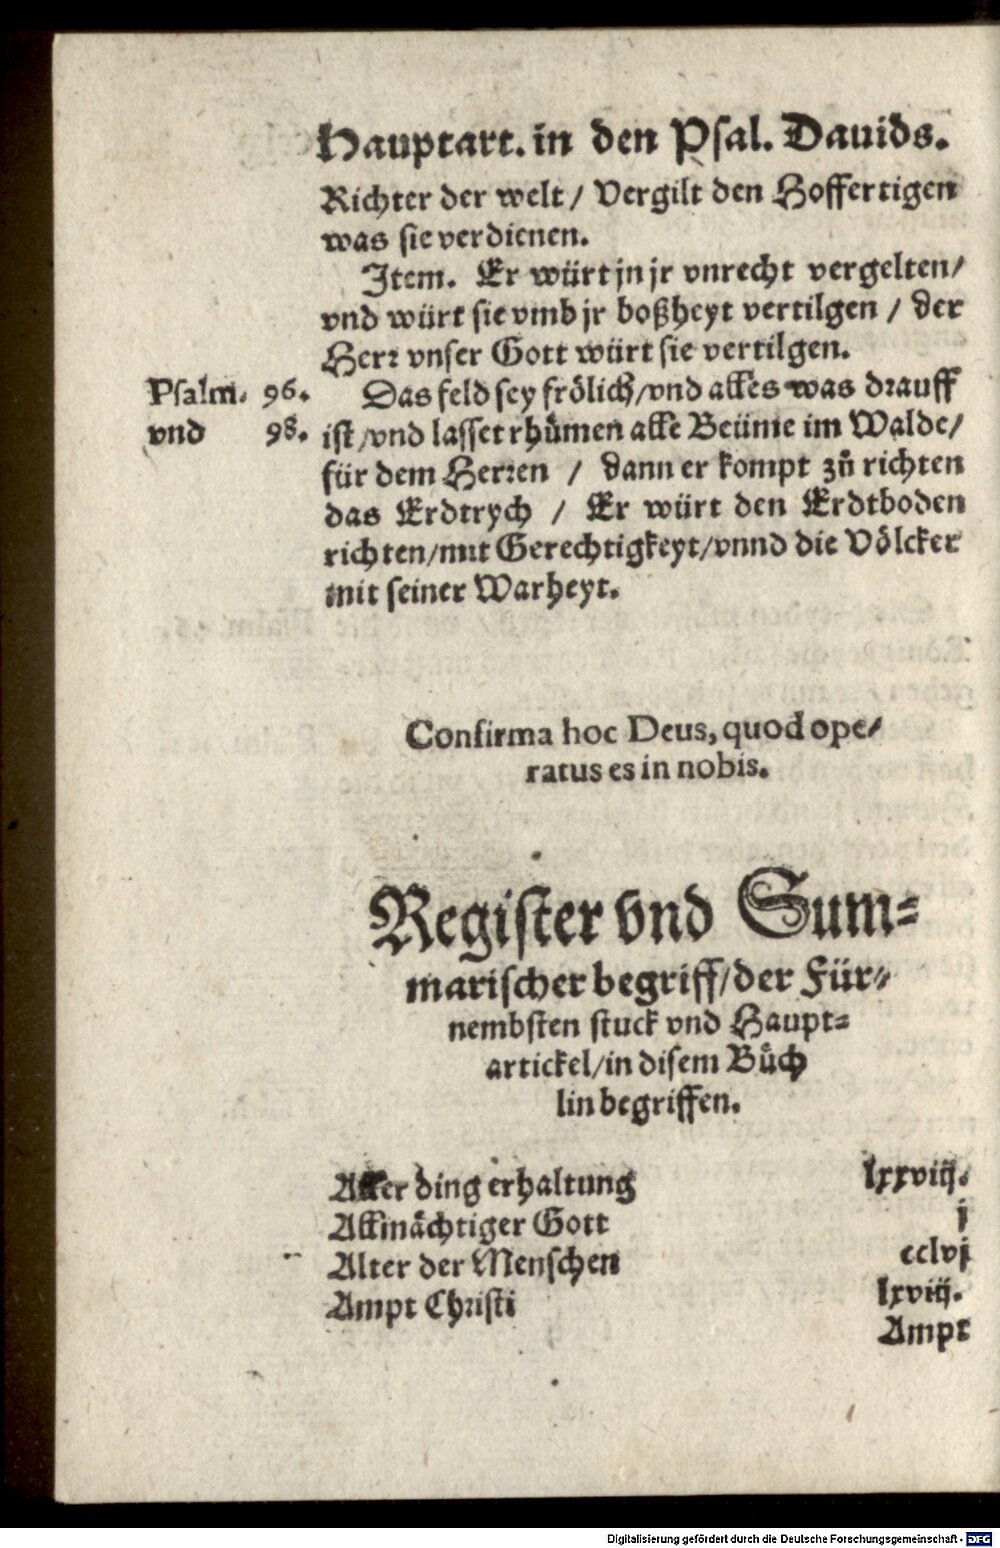 Hauptart. in den Psal. Dauids.
Richter der welt / Vergilt den Hoffertigen
was sie verdienen.
Item. Er würt jn jr vnrecht vergelten/
vnd würt sie vmb jr boßheyt vertilgen / der
Herr vnser Gott würt sie vertilgen.
Psalm. 96. Das feld sey frölich/vnd alles was drauff
vnd 98. ist/vnd lasset rhůmen alle Beüme im Walde/
für dem Herren / dann er kompt zů richten
das Erdtrych / Er würt den Erdtboden
richten/mit Gerechtigkeyt/vnnd die Völcker
mit seiner Warheyt.
Confirma hoc Deus, quod ope/
ratus es in nobis.
Register vnd Sum-
marischer begriff/der Für-
nembsten stuck vnd Haupt-
artickel/in disem Bůch
lin begriffen.
Aller ding erhaltung lxxviij.
Allmächtiger Gott j
Alter der Menschen cclvj
Ampt Christi lxviij.
Ampt
Digitalisierung gefördert durch die Deutsche Forschungsgemeinschaft - DFG